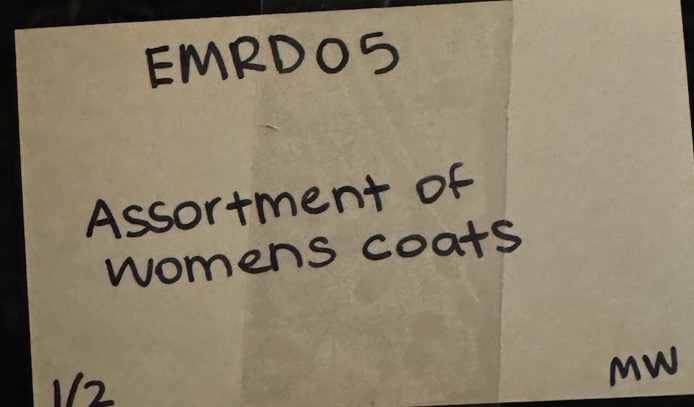 EMRD05
Assortment of
womens coats
1/2
MW